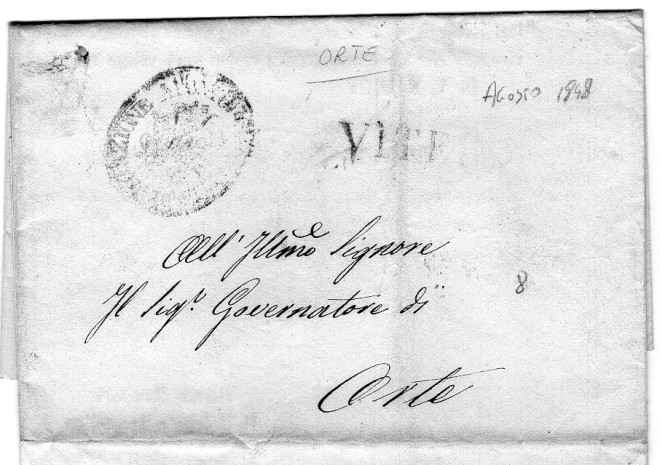 ORTE
Agosto 1848
VITE
All' Illmo Signore
Il Sigr. Governatore di
Orte
8